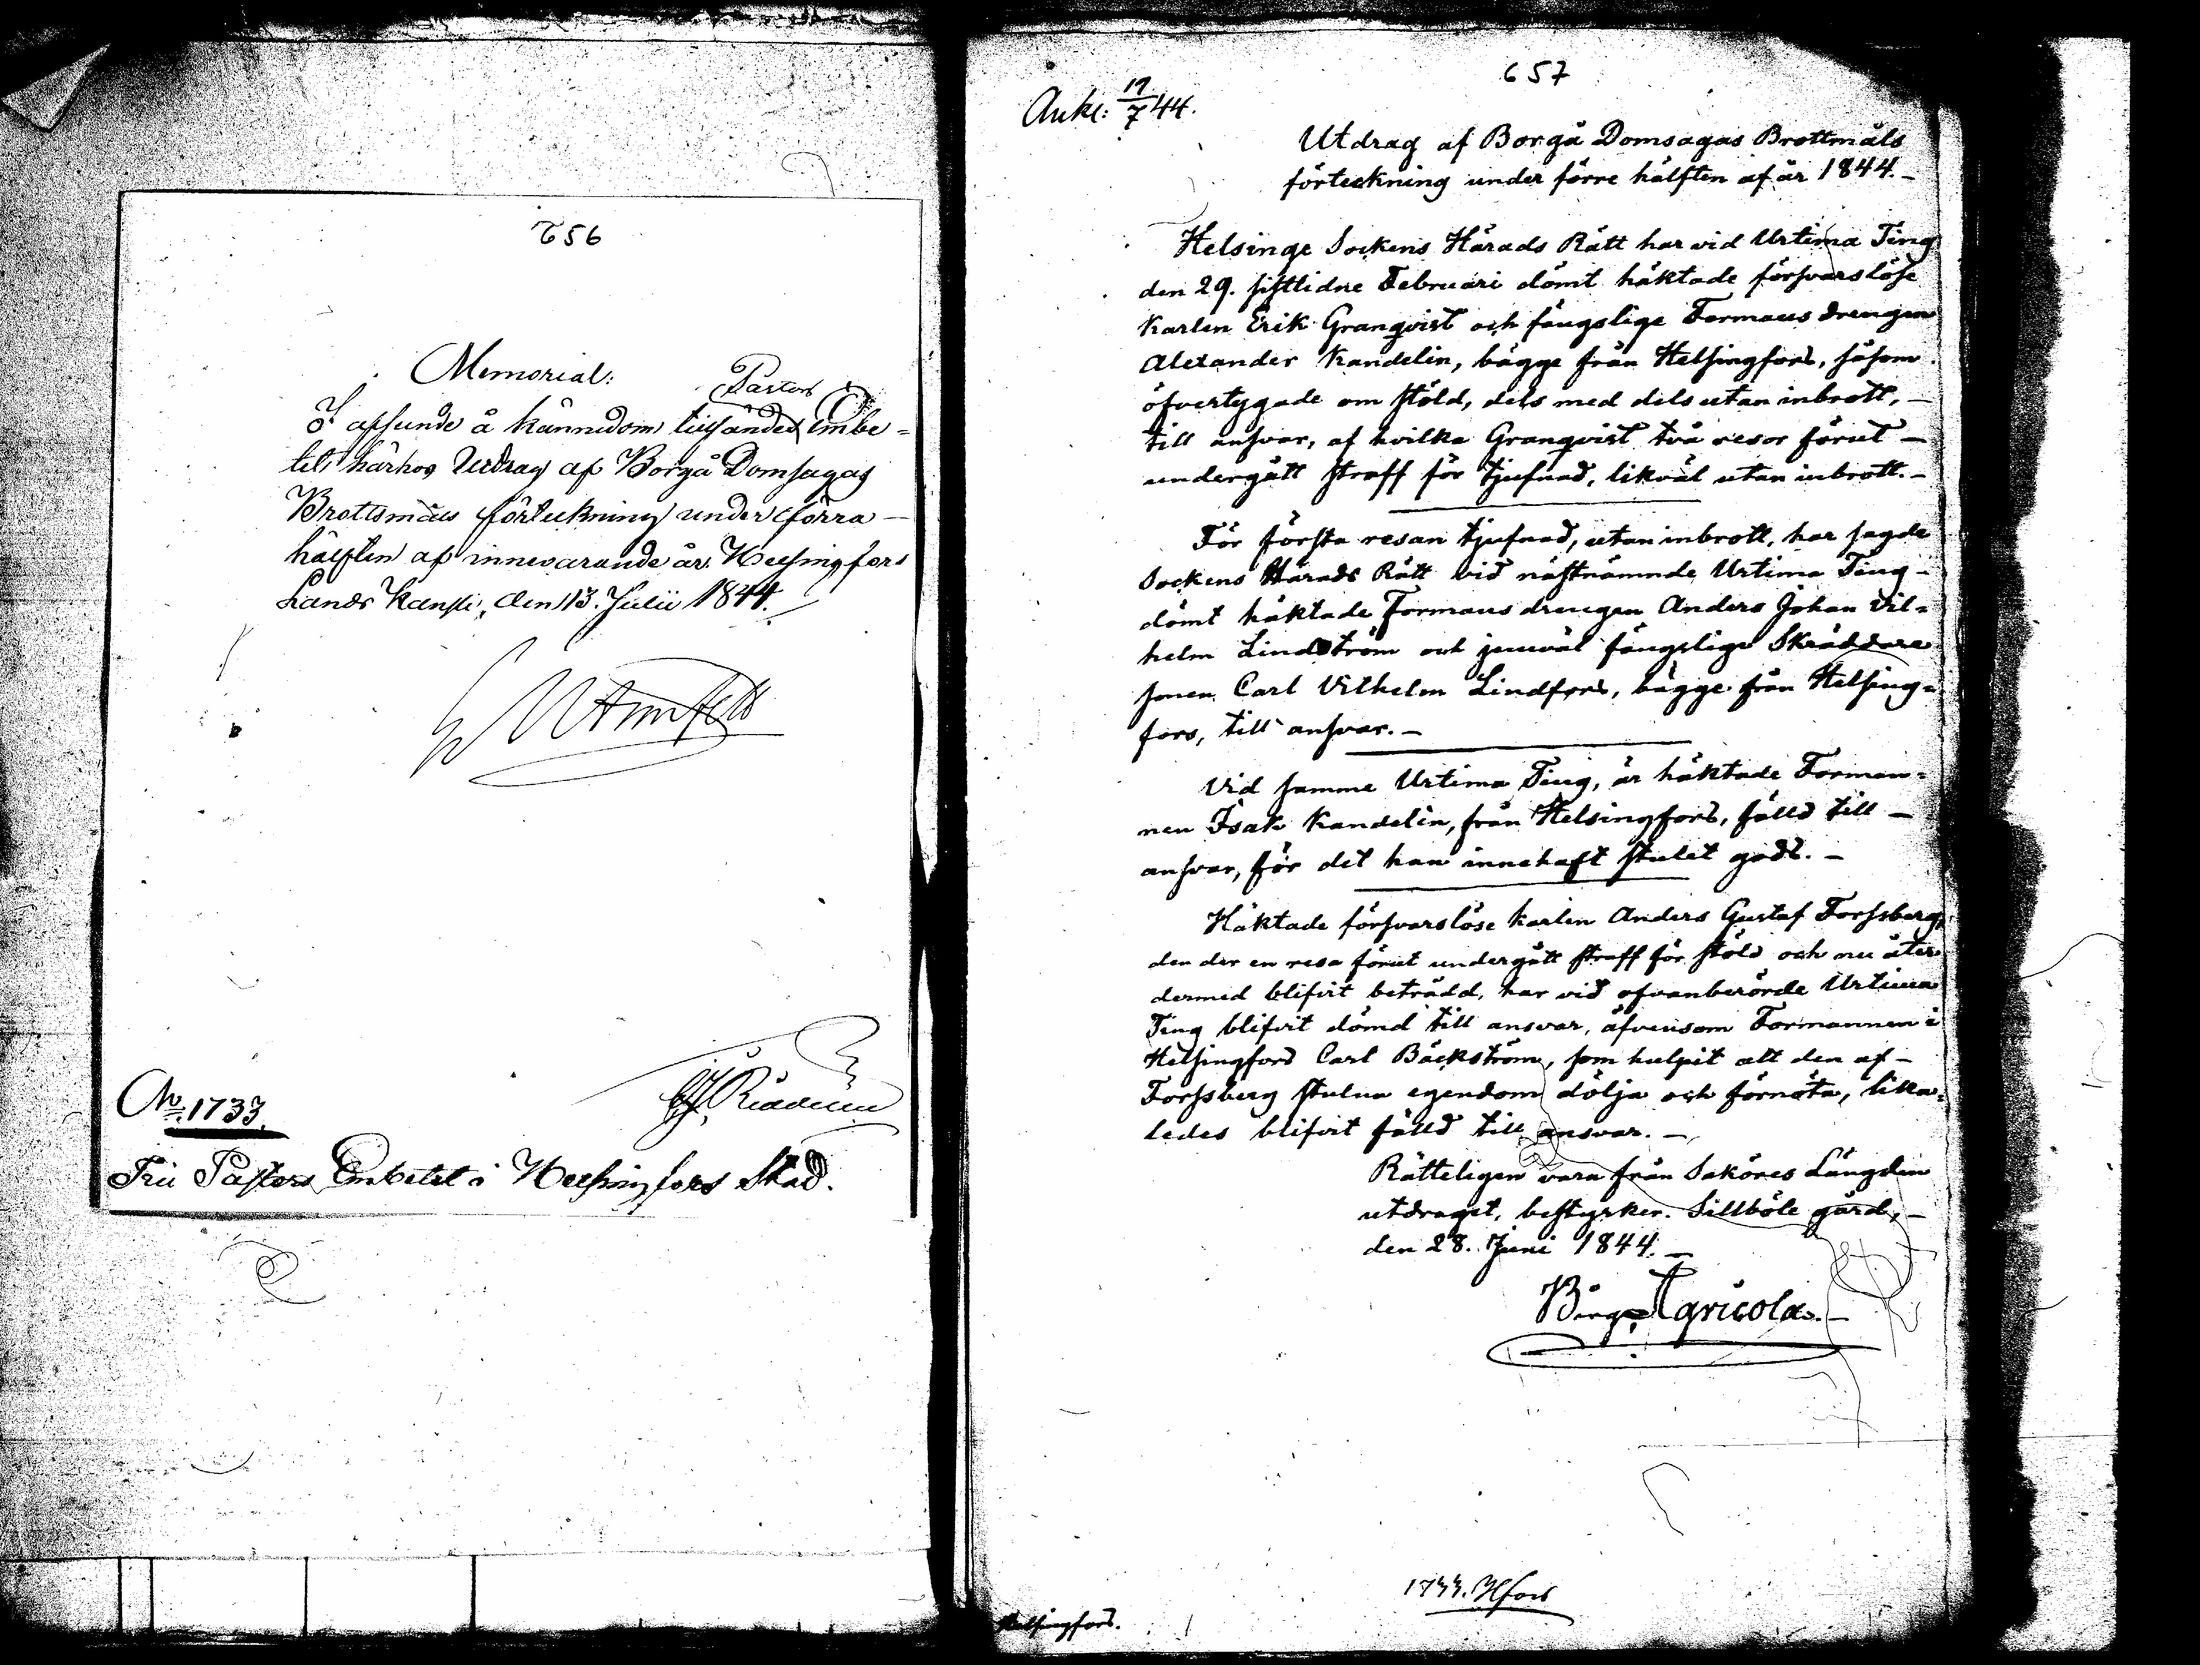 656
Memorial:
Pastors
I afseende å kännedom tillsändes Embe-
tet härhos Utdrag af Borgå Domsagas
Brottsmåls förteckning under förra
hälften af innevarande år. Helsingfors
Lands Kansli, den 13. Julii 1844.
No. 1733.
Till Pastors Embetet i Helsingfors Stad.
657
Ank: 19/7 44.
Utdrag af Borgå Domsagas Brottmåls
förteckning under förre hälften af år 1844.-
Helsinge Sockens Härads Rätt har vid Urtima Ting
den 29. sistlidne Februari dömt häktade försvarslöse
Karlen Erik Granqvist och fängslige Formans drengen
Alexander Kandelin, bägge från Helsingfors, såsom
öfvertygade om stöld, dels med dels utan inbrott, -
till ansvar, af hvilka Granqvist två resor förut -
undergått straff för tjufnad, likväl utan inbrott.-
För första resan tjufnad, utan inbrott, har sagde
Sockens Härads Rätt vid nästnämnde Urtima Ting -
dömt häktade Formans drengen Anders Johan Vil-
helm Lindström och jemväl fängslige Skräddare
sonen Carl Vilhelm Lindfors, bägge från Helsing-
fors, till ansvar.-
Vid samme Urtima Ting, är häktade Forman-
nen Isak Kandelin, från Helsingfors, fälld till -
ansvar, för det han innehaft stulet gods. -
Häktade försvarslöse karlen Anders Gustaf Forssberg,
den der en resa förut undergått straff för stöld och nu åter
dermed blifvit beträdd, har vid ofvanberörde Urtima
Ting blifvit dömd till ansvar, äfvensom Formannen i
Helsingfors Carl Bäckström, som hulpit att den af -
Forssberg stulna egendom dölja och förnöta, lika-
ledes blifvit fälld till ansvar. -
Rätteligen vara från Saköres Längden
utdraget, bestyrker. Sillböle gård, -
den 28. Juni 1844. -
Birger Agricola. -
1733. Hfors
Helsingfors.